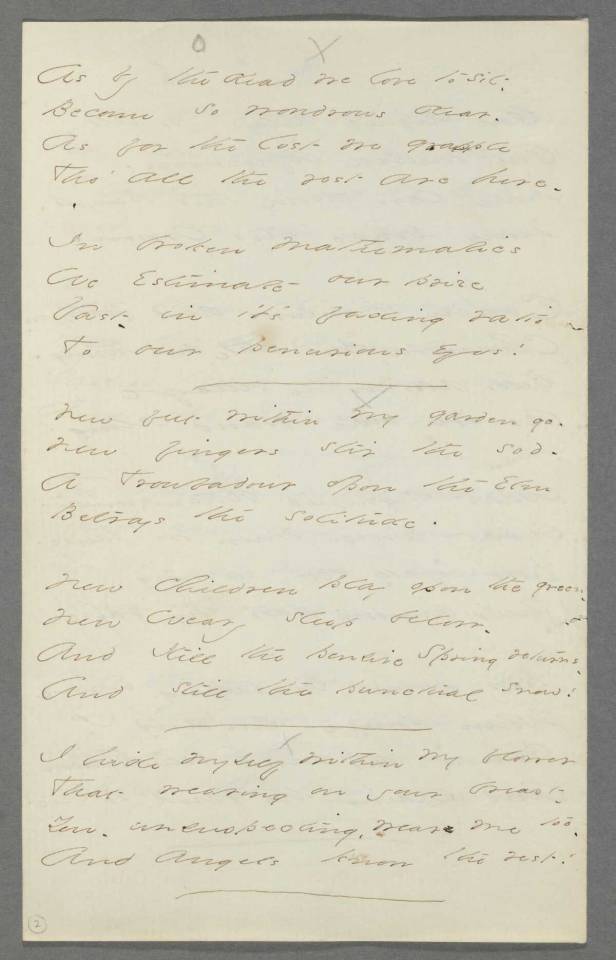 As by the dead we love to sit -
Become so wondrous dear -
As for the lost we grapple
Tho' all the rest are here -
In broken mathematics
We Estimate our prize
Vast - in it's fading ratio -
To our penurious Eyes!
New feet within my garden go -
New fingers stir the sod -
A Troubadour upon the Elm
Betrays the solitude.
New Children play upon the green -
New Weary sleep below -
And still the pensive Spring returns -
And still the punctual snow!
I hide myself within my flower
That wearing on your breast -
You - unsuspecting, wear me too -
And Angels know the rest!
2